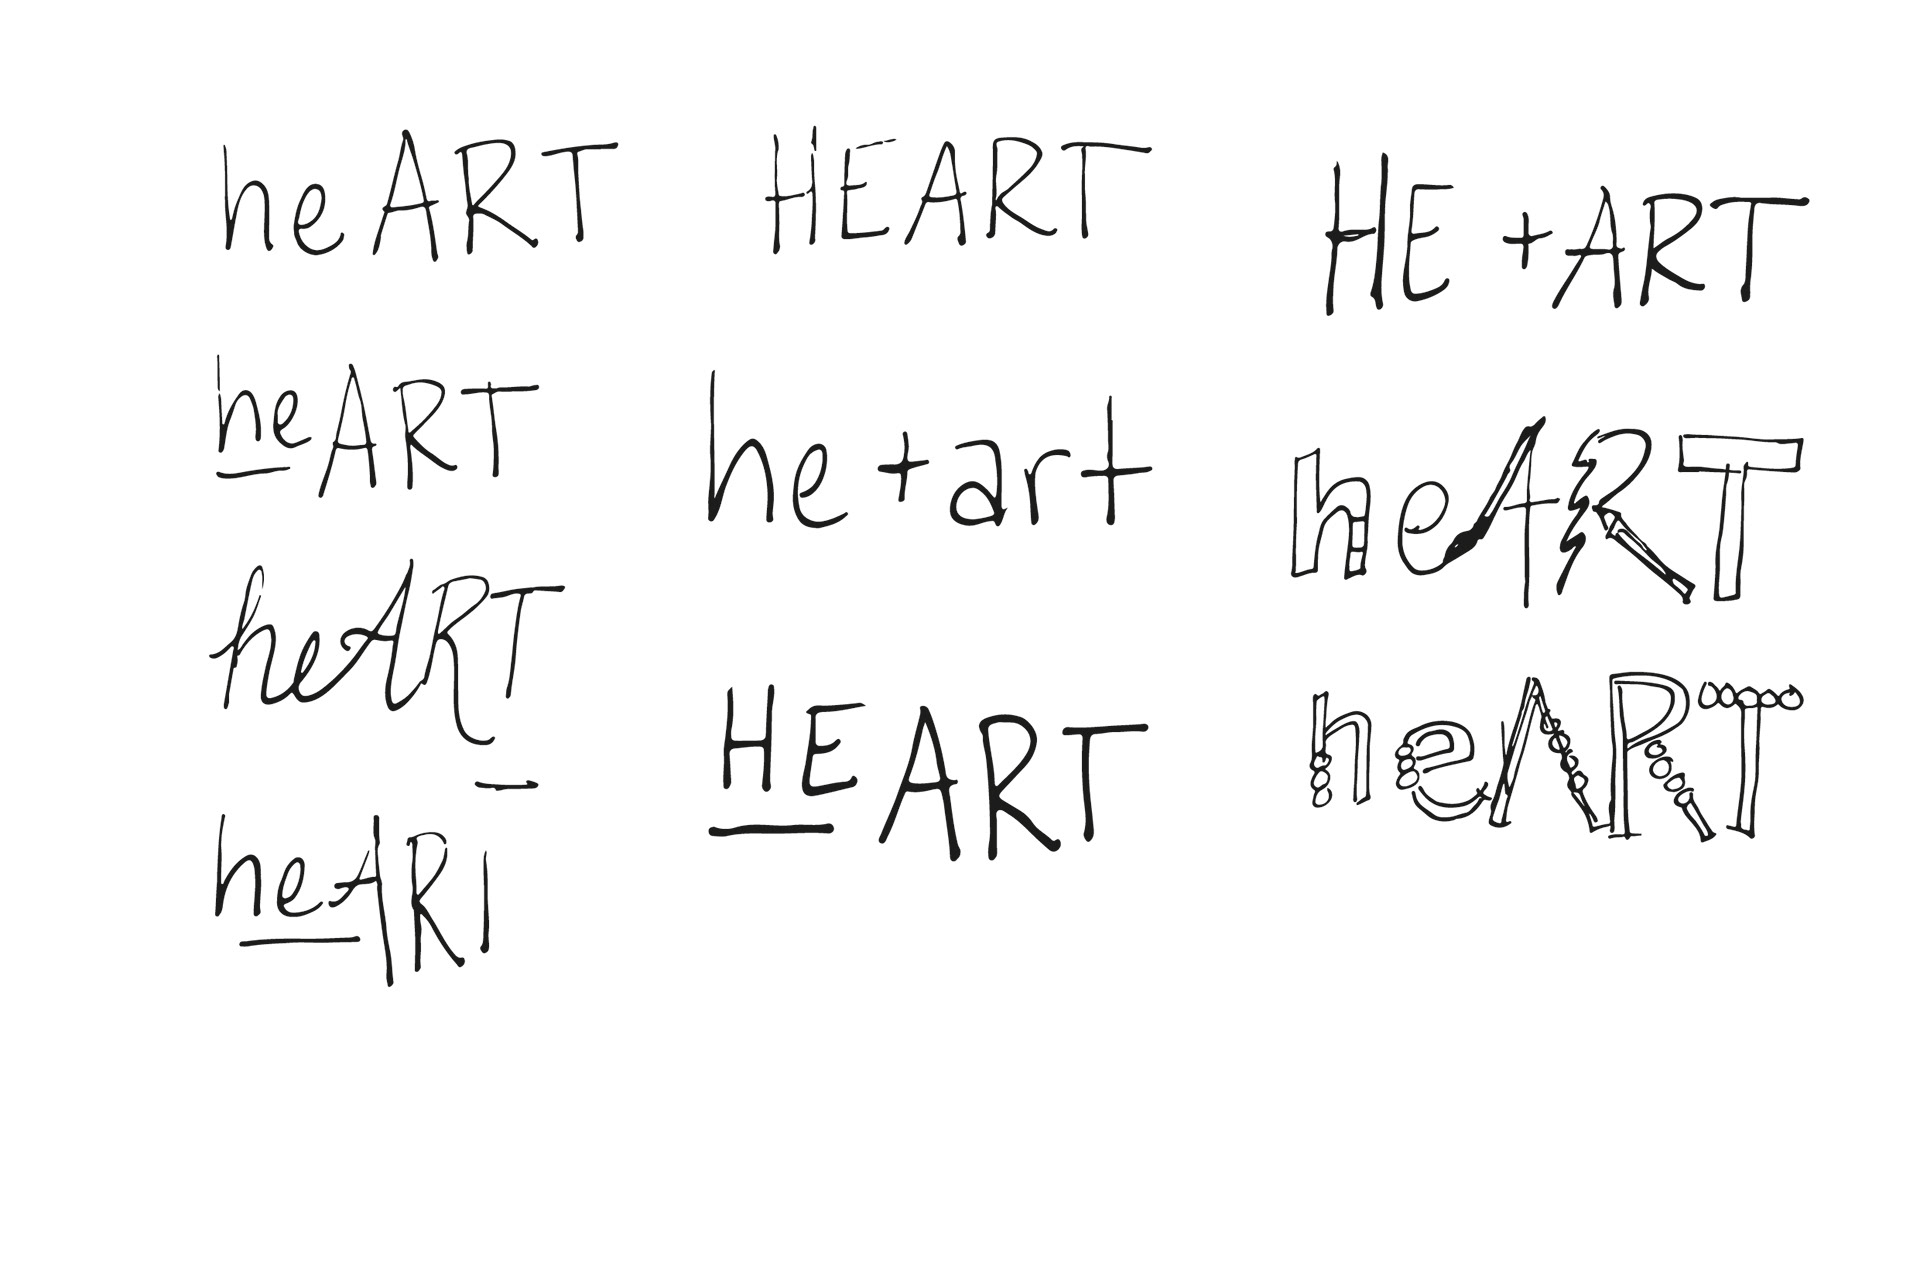 heART
HEART
HE + ART
heART
he + art
heART
heART
HEART
heART
heART